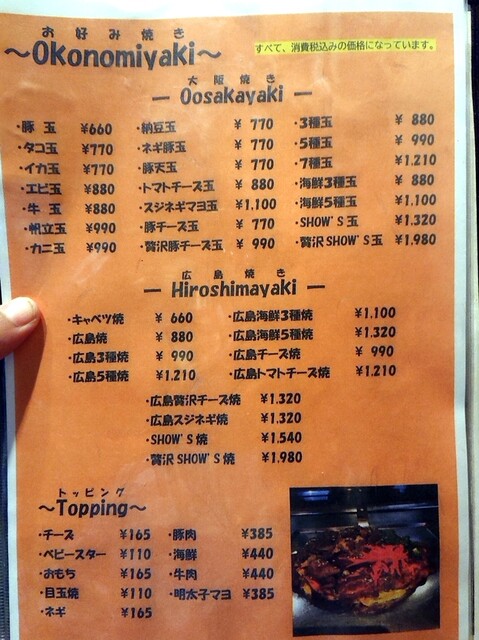 お好み焼き
～Okonomiyaki～
すべて、消費税込みの価格になっています。
大阪焼き
— Oosakayaki —
・豚 玉 ¥660
・タコ玉 ¥770
・イカ玉 ¥770
・エビ玉 ¥880
・牛 玉 ¥880
・帆立玉 ¥990
・カニ玉 ¥990
・納豆玉 ¥ 770
・ネギ豚玉 ¥ 770
・豚天玉 ¥ 770
・トマトチーズ玉 ¥ 880
・スジネギマヨ玉 ¥1,100
・豚チーズ玉 ¥ 770
・贅沢豚チーズ玉 ¥ 990
・3種玉 ¥ 880
・5種玉 ¥ 990
・7種玉 ¥1,210
・海鮮3種玉 ¥ 880
・海鮮5種玉 ¥1,100
・SHOW'S玉 ¥1,320
・贅沢SHOW'S玉 ¥1,980
広島焼き
— Hiroshimayaki —
・キャベツ焼 ¥ 660
・広島焼 ¥ 880
・広島3種焼 ¥ 990
・広島5種焼 ¥1,210
・広島海鮮3種焼 ¥1,100
・広島海鮮5種焼 ¥1,320
・広島チーズ焼 ¥ 990
・広島トマトチーズ焼 ¥1,210
・広島贅沢チーズ焼 ¥1,320
・広島スジネギ焼 ¥1,320
・SHOW'S焼 ¥1,540
・贅沢SHOW'S焼 ¥1,980
トッピング
～Topping～
・チーズ ¥165
・ベビースター ¥110
・おもち ¥165
・目玉焼 ¥110
・ネギ ¥165
・豚肉 ¥385
・海鮮 ¥440
・牛肉 ¥440
・明太子マヨ ¥385